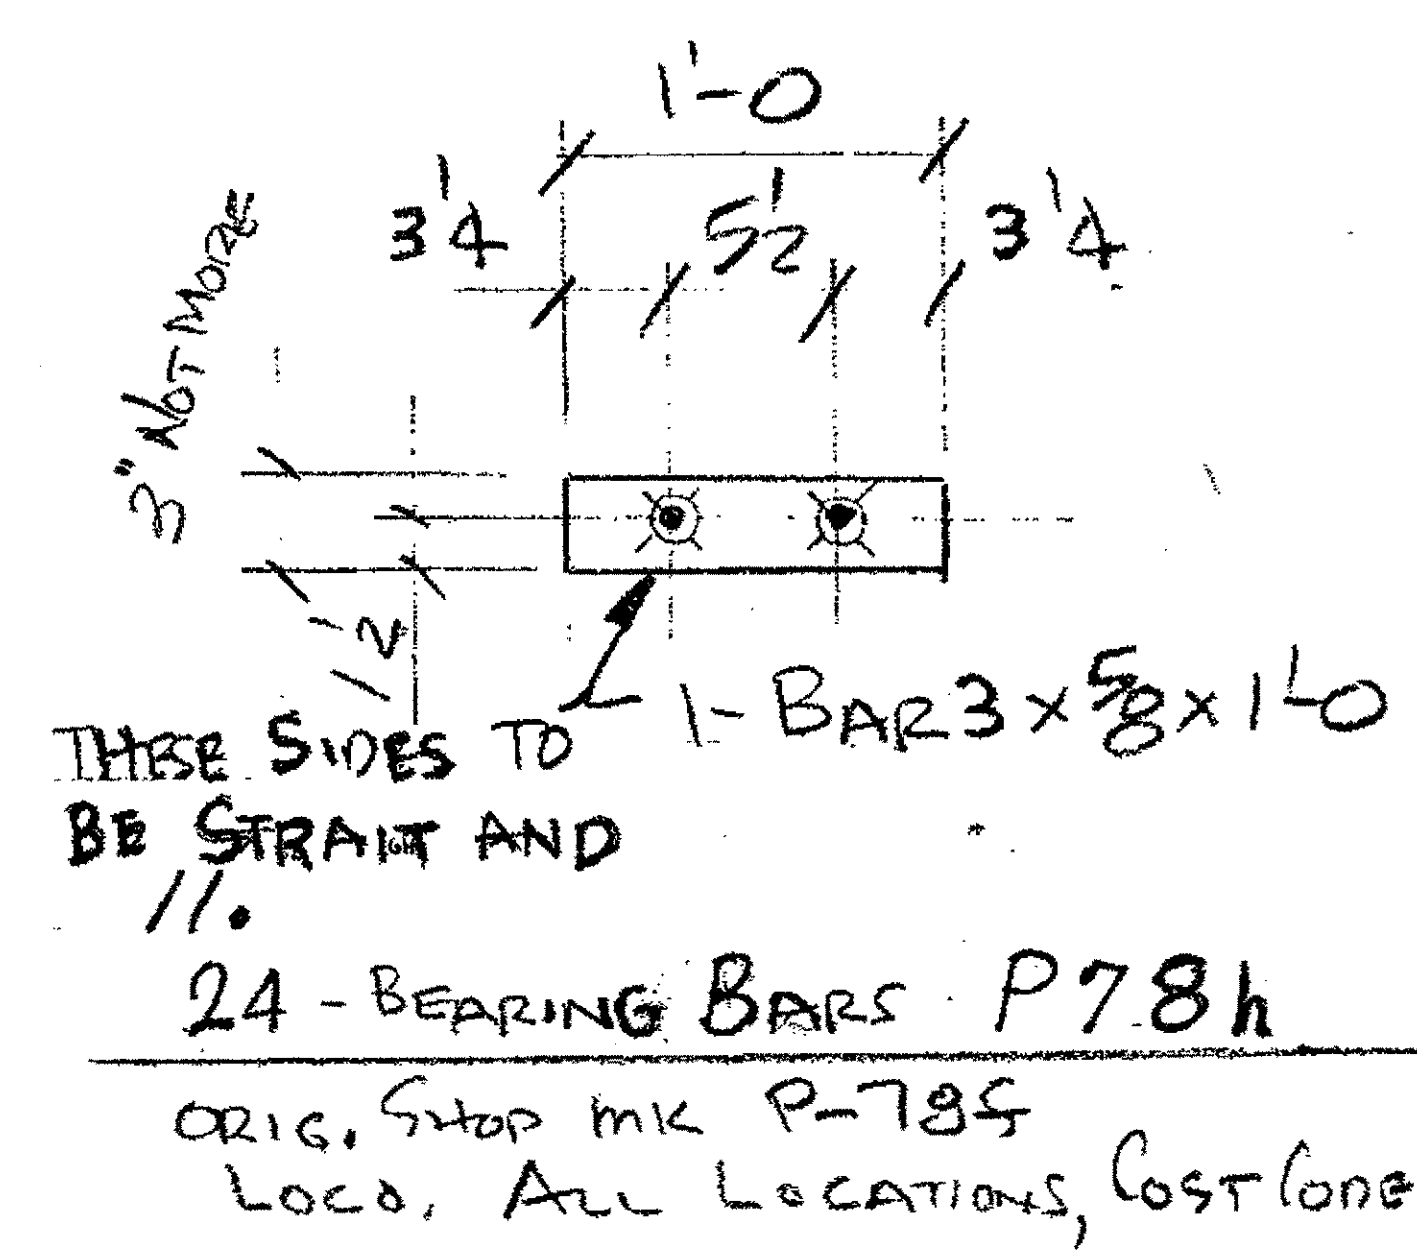 1'-0
3 1/4 5 1/2 3 1/4
3" NOT MORE
1 1/2
1- BAR 3 x 5/8 x 1'-0
THESE SIDES TO
BE STRAIGHT AND
//.
24 - BEARING BARS P78h
ORIG. SHOP MK P-78f
LOCO. ALL LOCATIONS, COST CODE